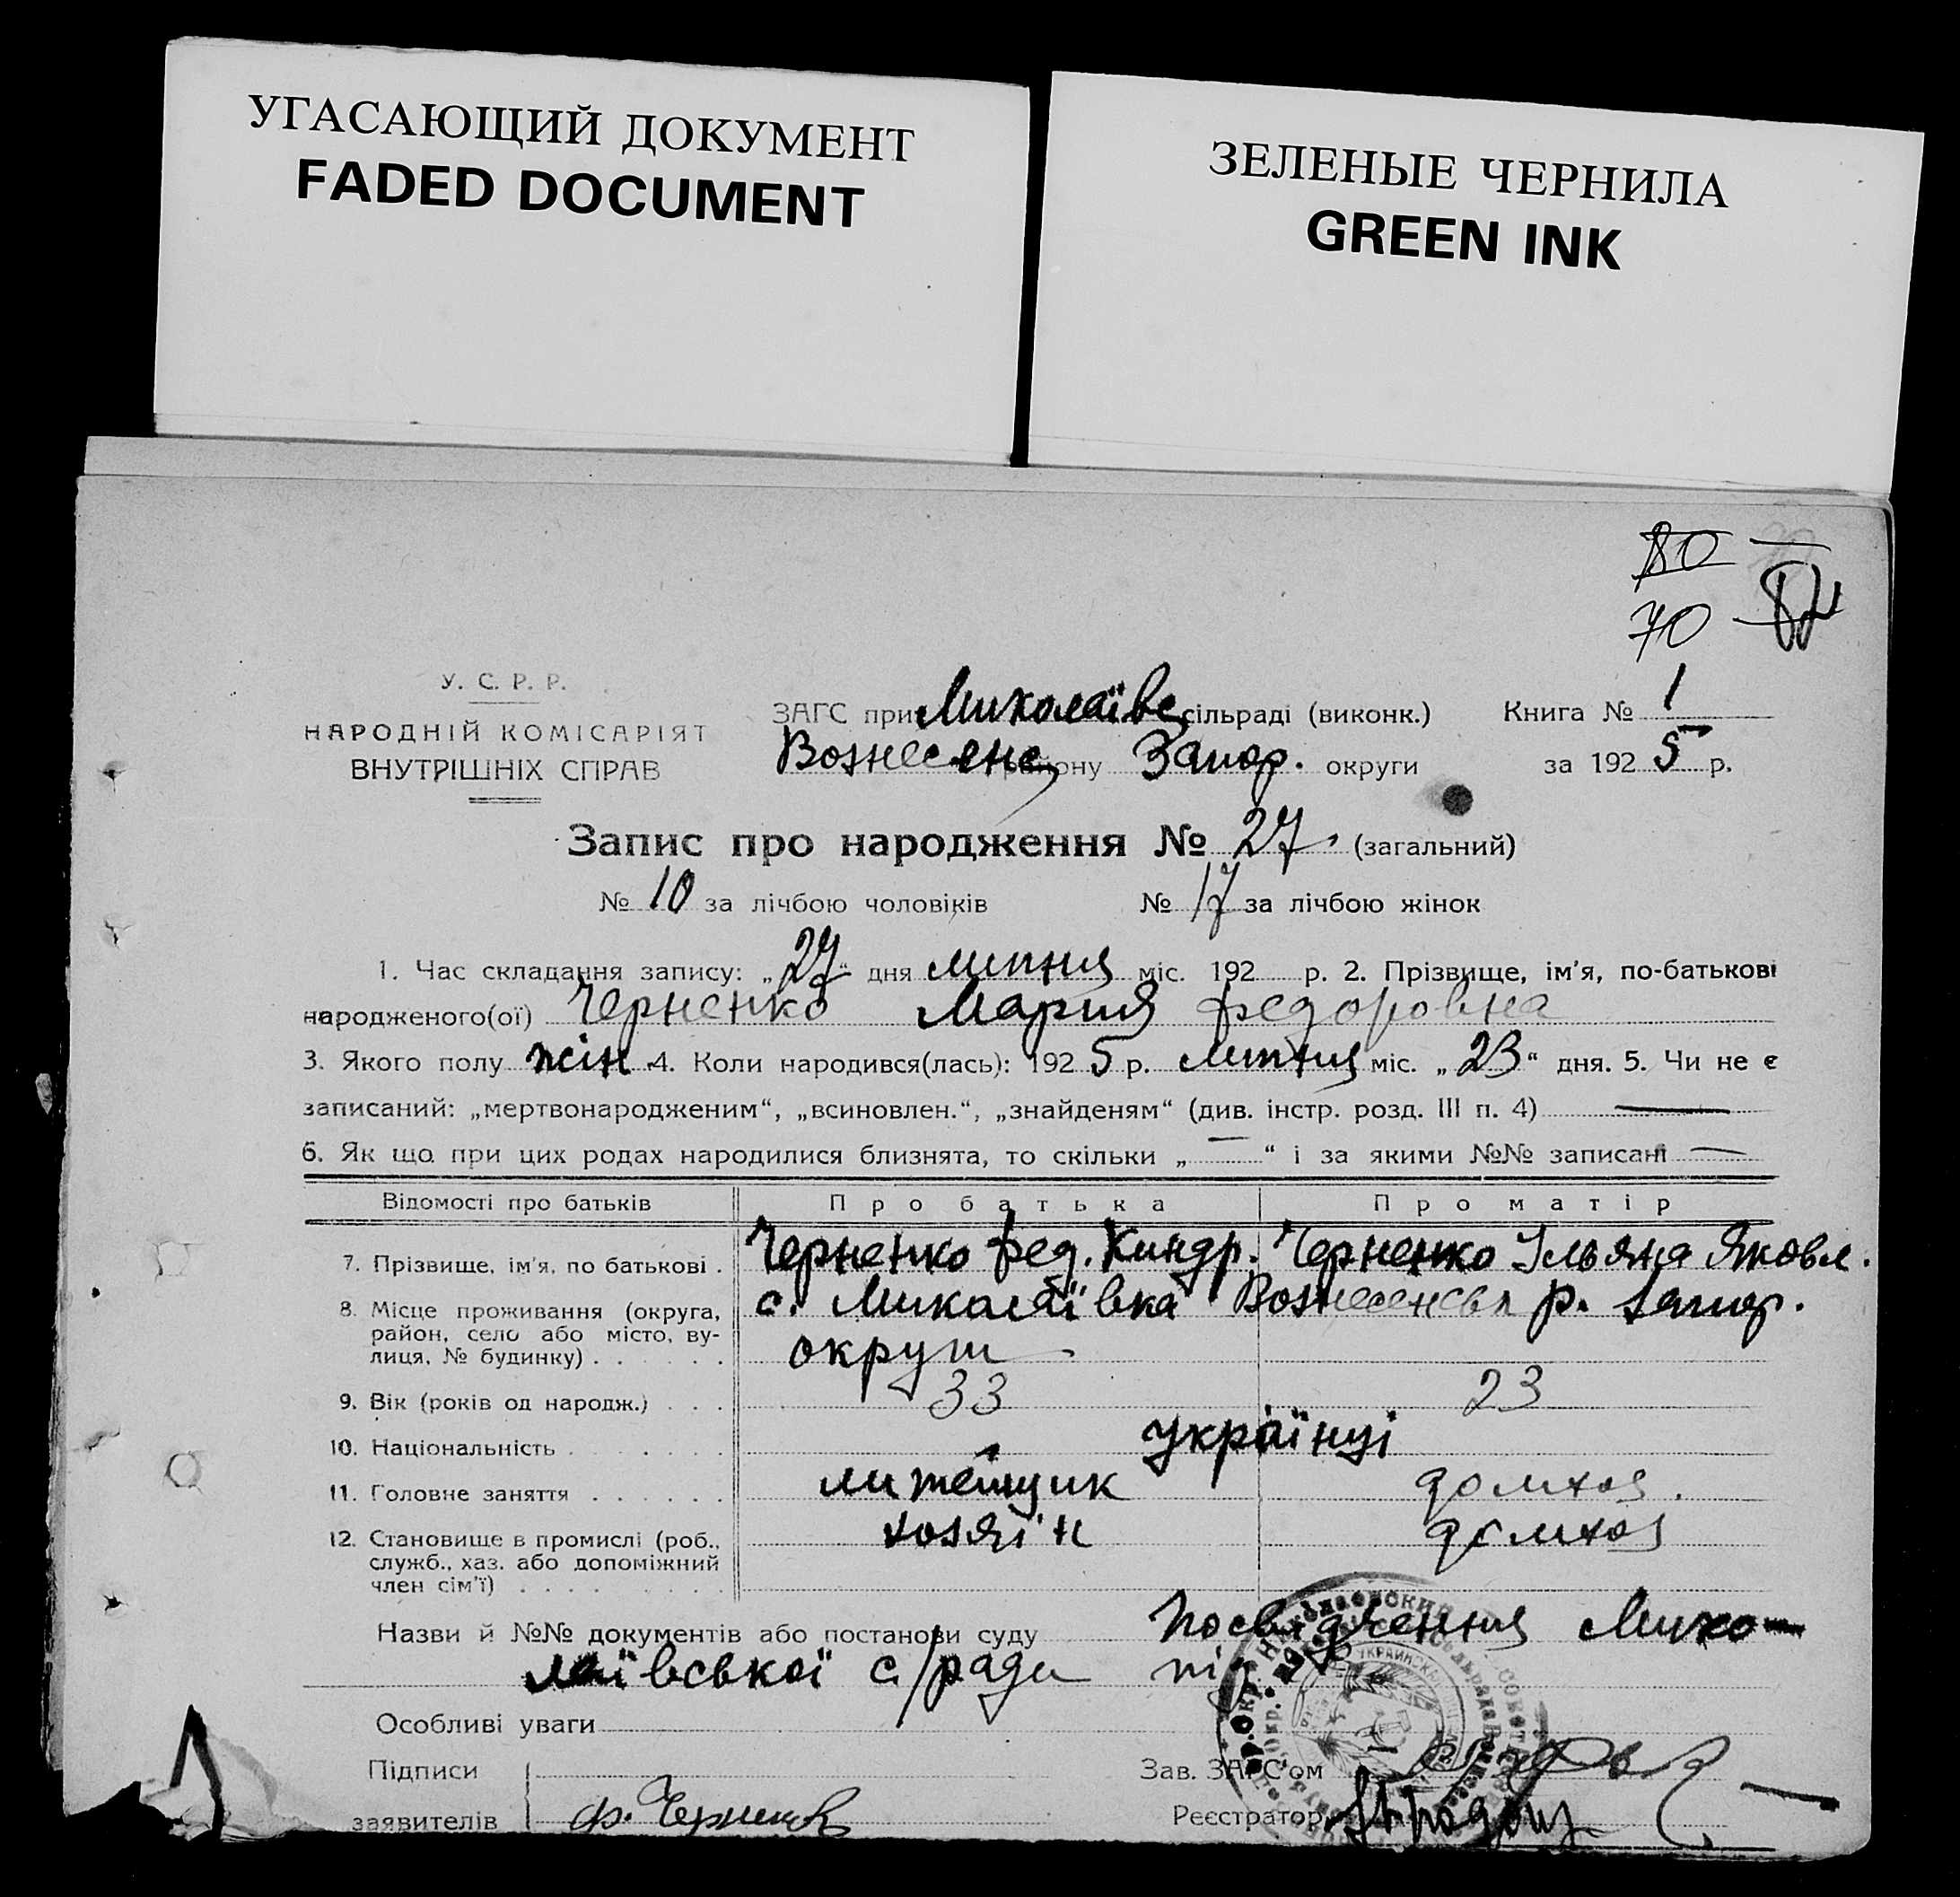 УГАСАЮЩИЙ ДОКУМЕНТ
FADED DOCUMENT
ЗЕЛЕНЫЕ ЧЕРНИЛА
GREEN INK
80
70
У. С. Р. Р.
НАРОДНІЙ КОМІСАРІЯТ
ВНУТРІШНІХ СПРАВ
ЗАГС при Миколаївс сільраді (виконк.) Книга № 1
Вознесенс району Запор. округи за 1925 р.
Запис про народження № 27 (загальний)
№ 10 за лічбою чоловіків № 17 за лічбою жінок
1. Час складання запису: „27“ дня липня міс. 192 р. 2. Прізвище, ім'я, по-батькові
народженого(ої) Черненко Мария Федоровна
3. Якого полу жін 4. Коли народився(лась): 1925 р. липня міс. „23“ дня. 5. Чи не є
записаний: „мертвонародженим“, „всиновлен.“, „знайденям“ (див. інстр. розд. III п. 4) —
6. Як що при цих родах народилися близнята, то скільки „—“ і за якими №№ записані —
Відомості про батьків Про батька Про матір
7. Прізвище, ім'я, по батькові . Черненко Фед. Киндр. Черненко Ільяна Яковл.
8. Місце проживання (округа, район, село або місто, вулиця, № будинку) . с. Миколаївка р. Запор.
округи
9. Вік (років од народж.) . . . 33 23
10. Національність . українці
11. Головне заняття . литейщик домхоз.
12. Становище в промислі (роб., служб., хаз. або допоміжний член сім'ї) . хозяїн домхоз
Назви й №№ документів або постанови суду Посвідчення Мико-
лаївської с/ради
Особливі уваги
Підписи Зав. ЗАГС'ом
заявителів Ф. Черненко Реєстратор